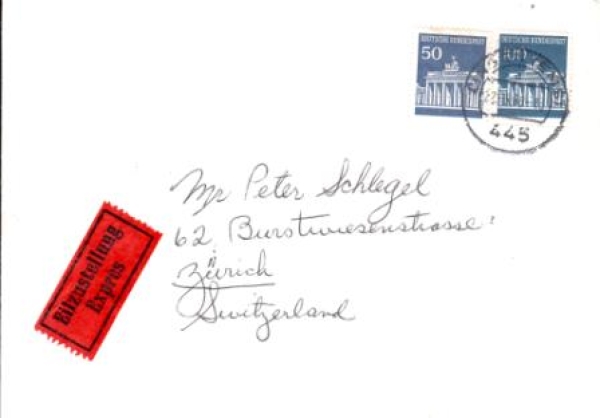 DEUTSCHE BUNDESPOST
50
DEUTSCHE BUNDESPOST
100
445
Mr Peter Schlegel
62, Burstwiesenstrasse
Zürich
Switzerland
Eilzustellung
Exprès